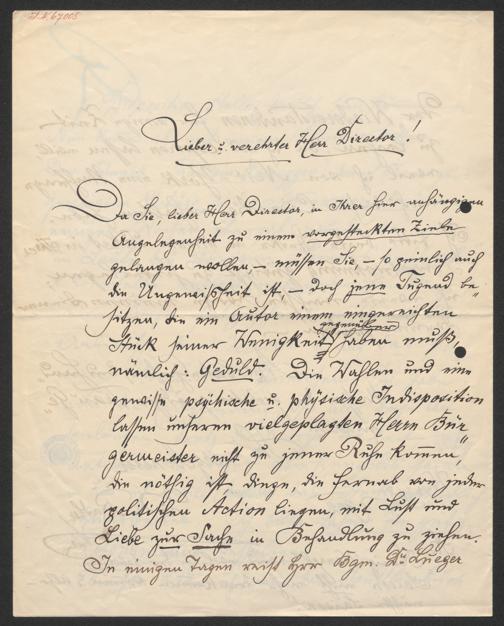 I.N. 67005
Lieber u. verehrter Herr Director!
Da Sie, lieber Herr Director, in Ihrer hier anhängigen
Angelegenheit zu einem vorgesteckten Ziele
gelangen wollen, – müssen Sie, – so peinlich auch
die Ungewißheit ist, – doch jene Tugend be-
sitzen, die ein Autor einem eingereichten
Stück seiner Wenigkeit gegenüber haben muß,
nämlich: Geduld. Die Wahlen und eine
gewisse psychische u. physische Indisposition
lassen unseren vielgeplagten Herrn Bür
germeister nicht zu jener Ruhe kommen,
die nöthig ist, dinge, die fernab von jeder
politischen Action liegen, mit Lust und
Liebe zur Sache in Behandlung zu ziehen.
In einigen Tagen reist Herr Bgm. Dr. Lueger